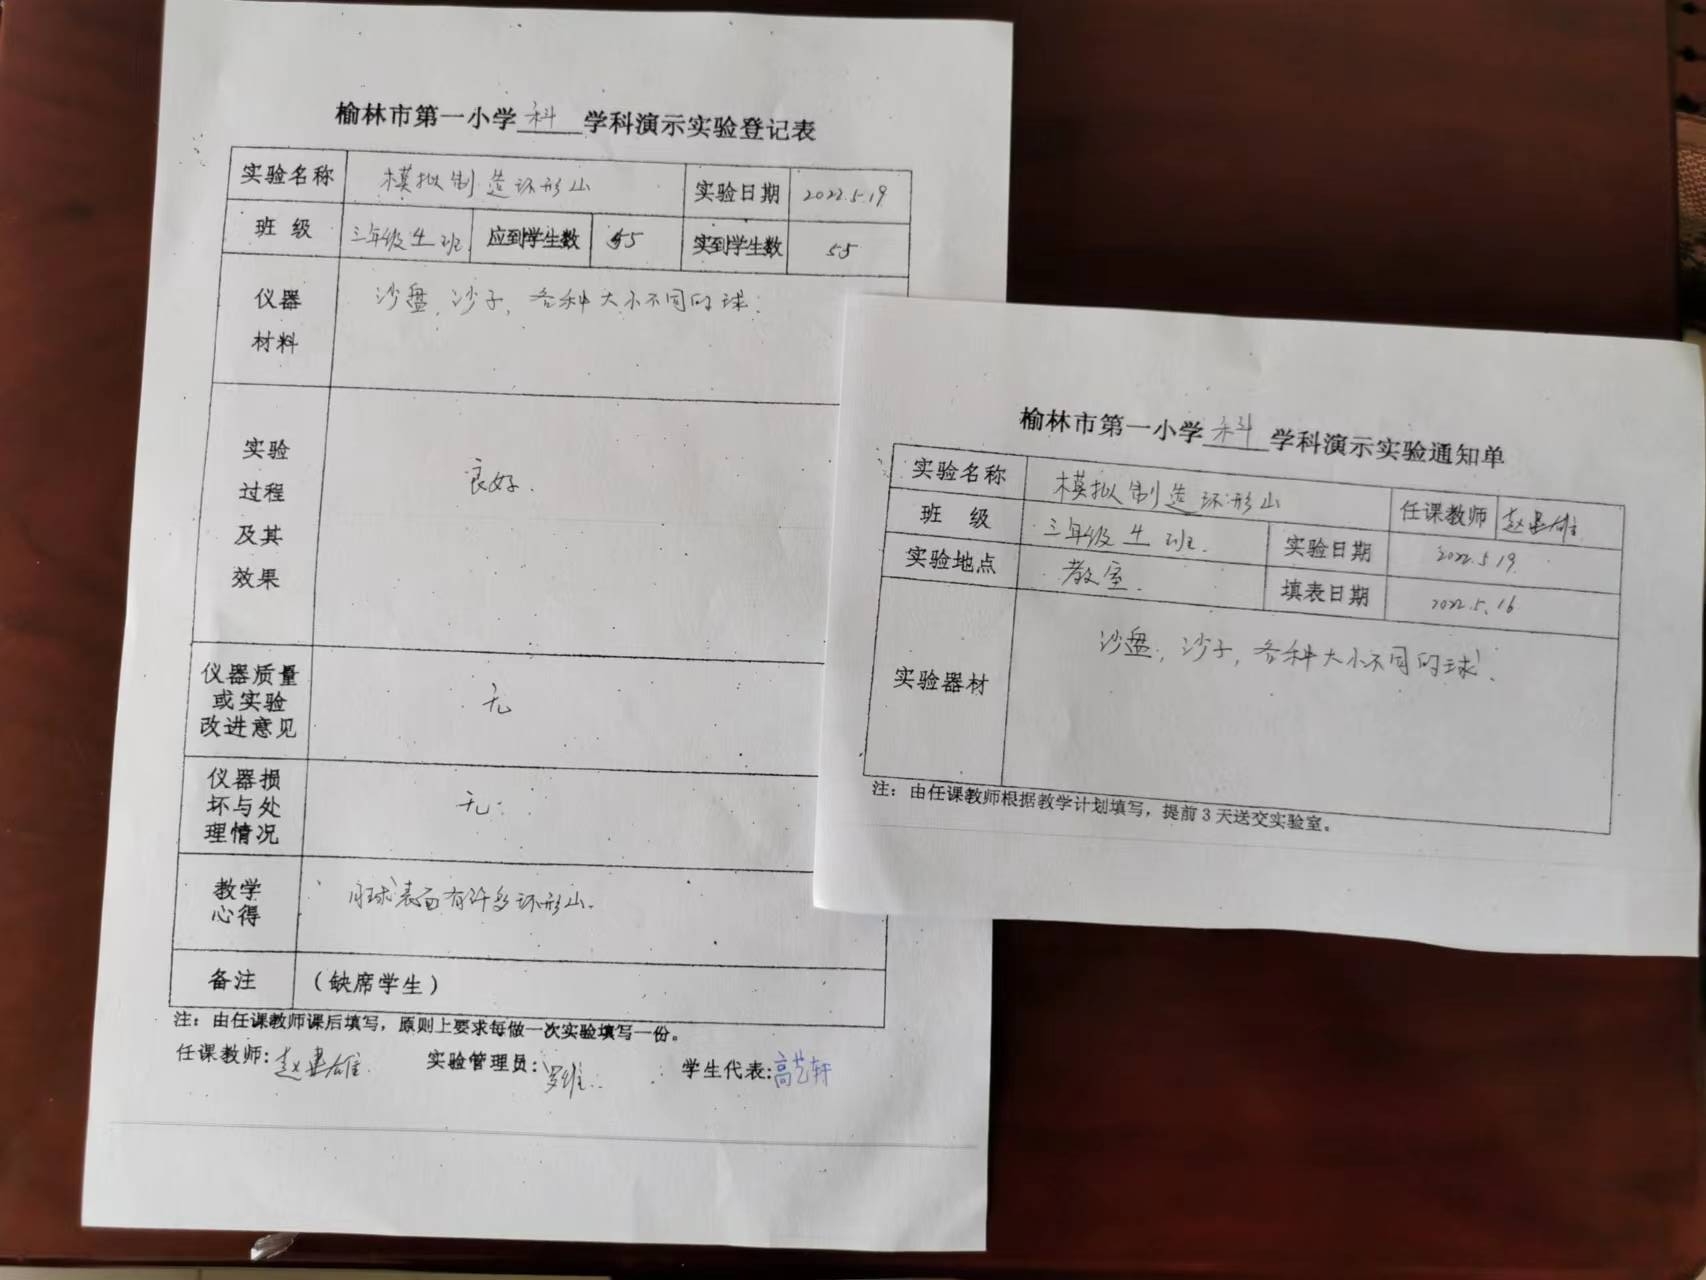 榆林市第一小学 科 学科演示实验登记表
实验名称 模拟制造环形山 实验日期 2022.5.19
班 级 三年级4班 应到学生数 55 实到学生数 55
仪器
材料
沙盘,沙子,各种大小不同的球.
实验
过程
及其
效果
良好.
仪器质量
或实验
改进意见
无
仪器损
坏与处
理情况
无.
教学
心得
月球表面有许多环形山.
备注 (缺席学生)
注:由任课教师课后填写,原则上要求每做一次实验填写一份。
任课教师: 赵 雄 实验管理员: 罗维 学生代表:高艺轩
榆林市第一小学 科 学科演示实验通知单
实验名称 模拟制造环形山 任课教师 赵 雄
班 级 三年级4班. 实验日期 2022.5.19
实验地点 教室. 填表日期 2022.5.16
实验器材 沙盘,沙子,各种大小不同的球.
注:由任课教师根据教学计划填写,提前3天送交实验室。